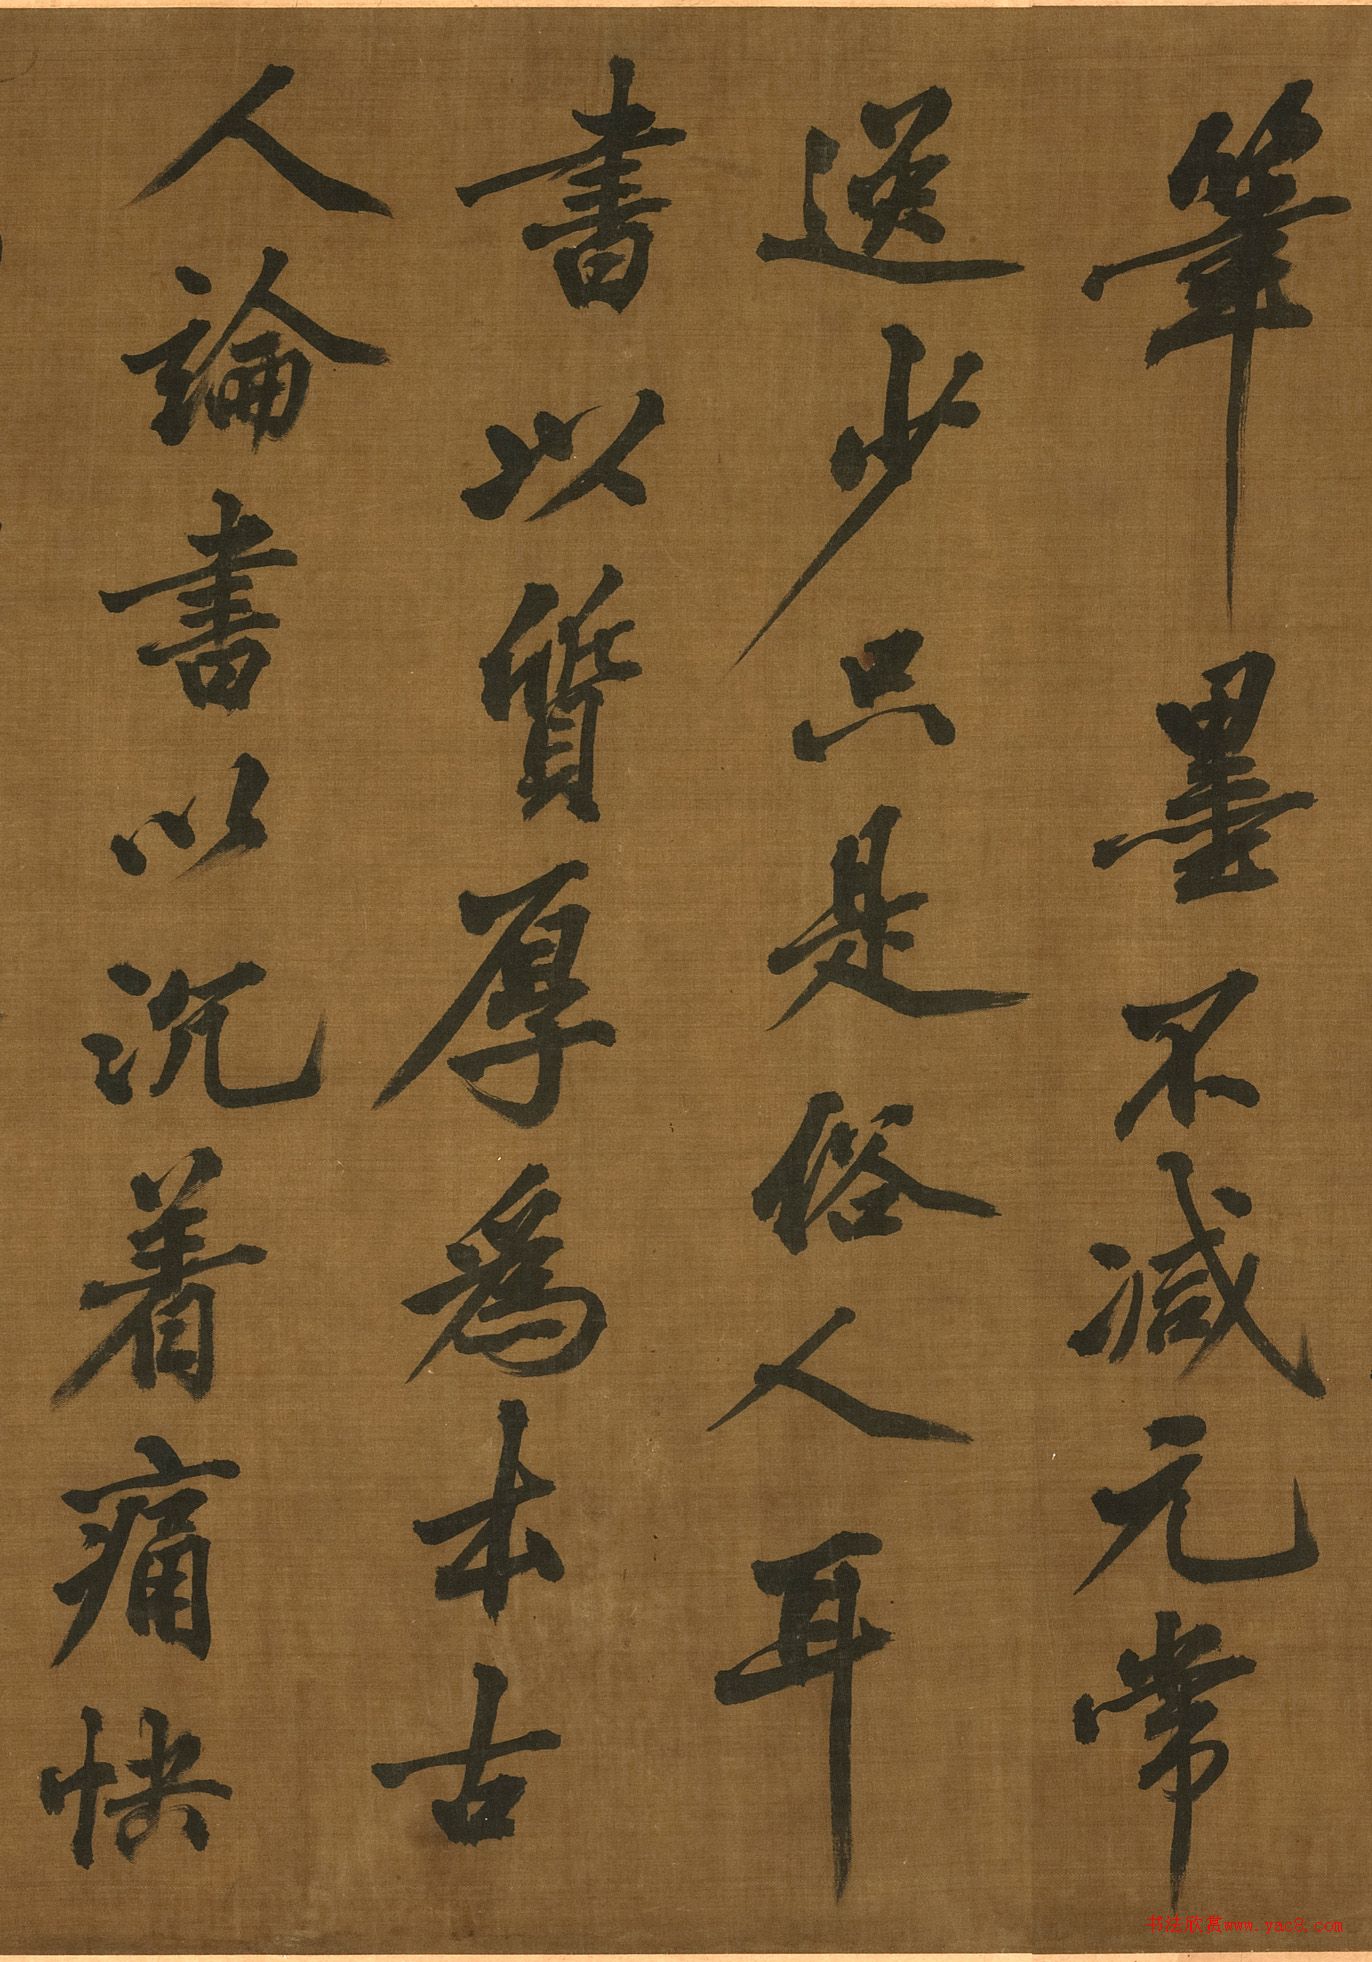 筆墨不減元常
逸少只是俗人耳
書以質厚爲本古
人論書以沉着痛快
书法欣赏www.yac8.com